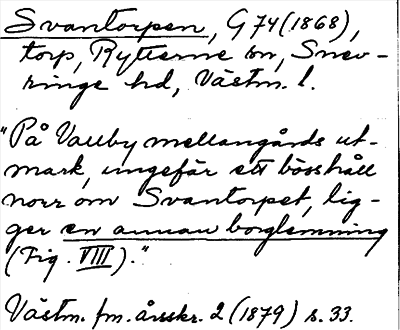 Svantorpen, G 74 (1868),
torp, Rytterne sn, Snev-
ringe hd, Västm. l.
"På Vallby mellangårds ut-
mark, ungefär ett bösshåll
norr om Svantorpet, lig-
ger en annan borglemning
(Fig. VIII)."
Västm. fm. årsskr. 2 (1879) s. 33.